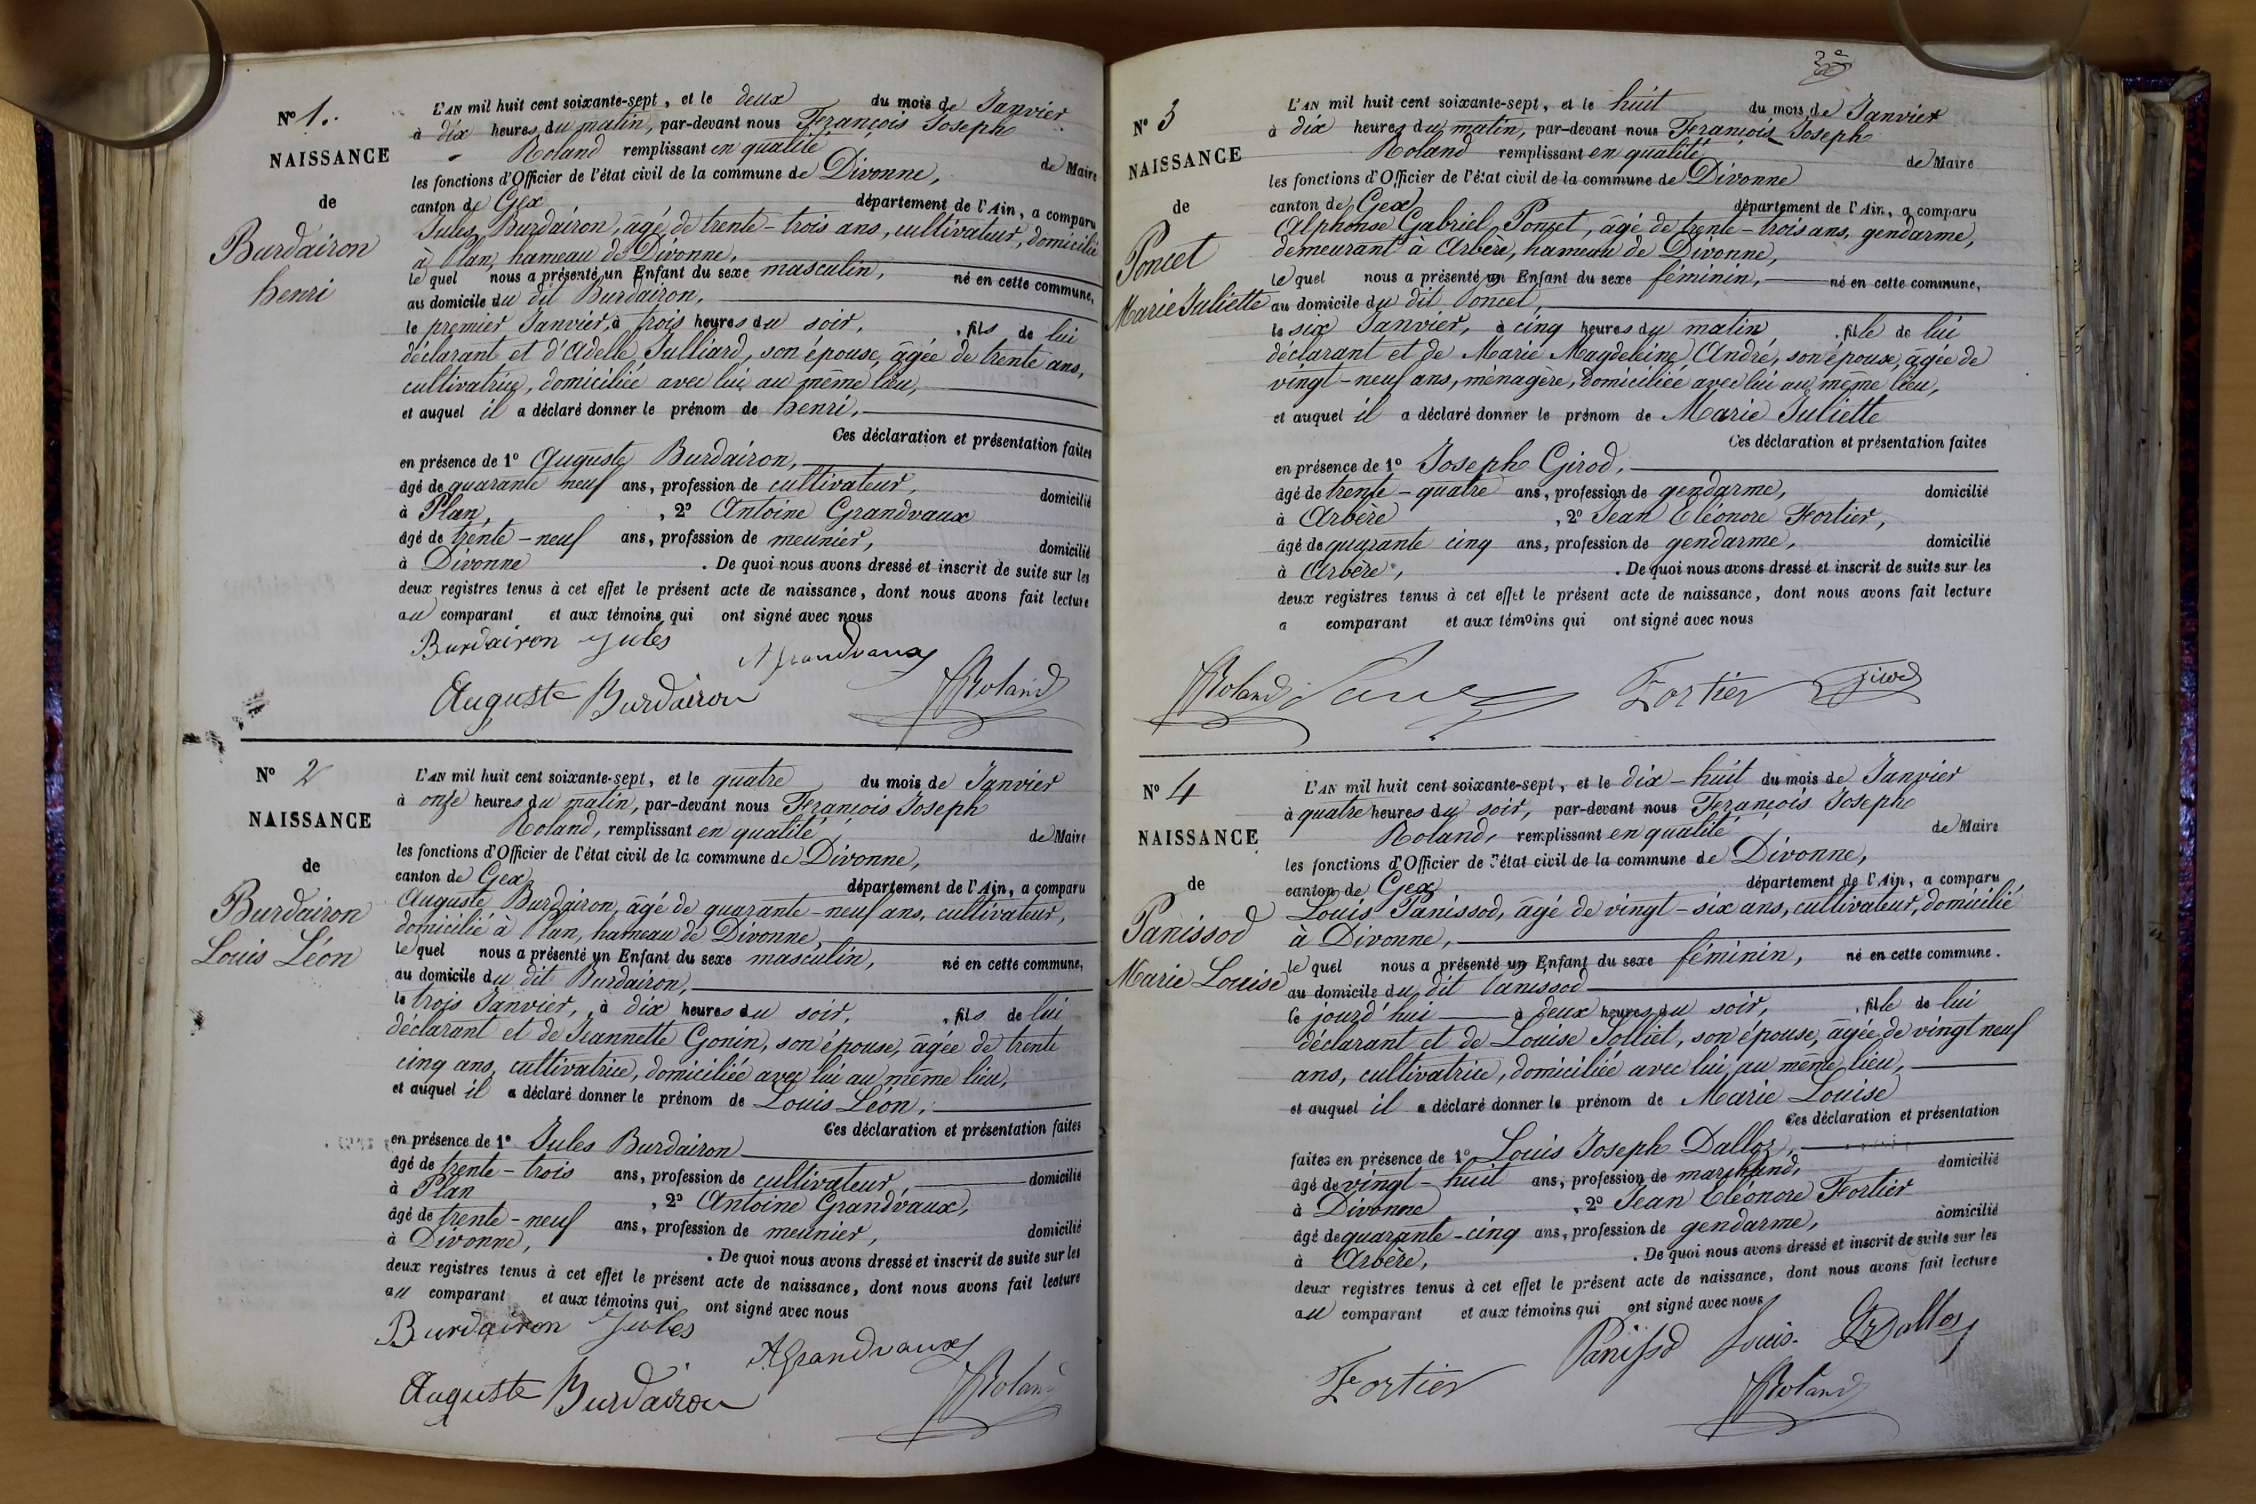 N° 1.
NAISSANCE
de
Burdairon
henri
L'AN mil huit cent soixante-sept, et le deux du mois de Janvier
à dix heures du matin, par-devant nous François Joseph
Roland remplissant en qualité de Maire
les fonctions d'Officier de l'état civil de la commune de Divonne,
canton de Gex département de l'Ain, a comparu
Jules Burdairon, âgé de trente-trois ans, cultivateur, domicilié
à Plan, hameau de Divonne,
le quel nous a présenté un Enfant du sexe masculin, né en cette commune,
au domicile du dit Burdairon,
le premier Janvier, à trois heures du soir, fils de lui
déclarant et d'Adelle Julliard, son épouse, âgée de trente ans,
cultivatrice, domiciliée avec lui au même lieu,
et auquel il a déclaré donner le prénom de henri,
Ces déclaration et présentation faites
en présence de 1° Auguste Burdairon,
âgé de quarante neuf ans, profession de cultivateur, domicilié
à Plan, , 2° Antoine Grandvaux
âgé de trente-neuf ans, profession de meunier, domicilié
à Divonne . De quoi nous avons dressé et inscrit de suite sur les
deux registres tenus à cet effet le présent acte de naissance, dont nous avons fait lecture
au comparant et aux témoins qui ont signé avec nous
Burdairon Jules
A Grandvaux
Auguste Burdairon
Roland
N° 2
NAISSANCE
de
Burdairon
Louis Léon
L'AN mil huit cent soixante-sept, et le quatre du mois de Janvier
à onze heures du matin, par-devant nous François Joseph
Roland, remplissant en qualité de Maire
les fonctions d'Officier de l'état civil de la commune de Divonne,
canton de Gex département de l'Ain, a comparu
Auguste Burdairon, âgé de quarante-neuf ans, cultivateur,
domicilié à Plan, hameau de Divonne,
le quel nous a présenté un Enfant du sexe masculin, né en cette commune,
au domicile du dit Burdairon,
le trois Janvier, à dix heures du soir, , fils de lui
déclarant et de Jeannette Gonin, son épouse, âgée de trente
cinq ans, cultivatrice, domiciliée avec lui au même lieu,
et auquel il a déclaré donner le prénom de Louis Léon,
Ces déclaration et présentation faites
en présence de 1° Jules Burdairon
âgé de trente-trois ans, profession de cultivateur, domicilié
à Plan , 2° Antoine Grandvaux,
âgé de trente-neuf ans, profession de meunier, domicilié
à Divonne, . De quoi nous avons dressé et inscrit de suite sur les
deux registres tenus à cet effet le présent acte de naissance, dont nous avons fait lecture
au comparant et aux témoins qui ont signé avec nous
Burdairon Jules
A Grandvaux
Auguste Burdairon
Roland
N° 3
NAISSANCE
de
Poncet
Marie Juliette
L'AN mil huit cent soixante-sept, et le huit du mois de Janvier
à dix heures du matin, par-devant nous François Joseph
Roland remplissant en qualité de Maire
les fonctions d'Officier de l'état civil de la commune de Divonne
canton de Gex département de l'Ain, a comparu
Alphonse Gabriel Poncet, âgé de trente-trois ans, gendarme,
demeurant à Arbère, hameau de Divonne,
le quel nous a présenté un Enfant du sexe féminin, né en cette commune,
au domicile du dit Poncet,
le six Janvier, à cinq heures du matin , fille de lui
déclarant et de Marie Magdeleine André, son épouse, âgée de
vingt-neuf ans, ménagère, domiciliée avec lui au même lieu,
et auquel il a déclaré donner le prénom de Marie Juliette
Ces déclaration et présentation faites
en présence de 1° Joseph Girod,
âgé de trente-quatre ans, profession de gendarme, domicilié
à Arbère , 2° Jean Eléonore Fortier,
âgé de quarante cinq ans, profession de gendarme, domicilié
à Arbère, . De quoi nous avons dressé et inscrit de suite sur les
deux registres tenus à cet effet le présent acte de naissance, dont nous avons fait lecture
a comparant et aux témoins qui ont signé avec nous
Roland Fortier Girod
N° 4
NAISSANCE
de
Panissod
Marie Louise
L'AN mil huit cent soixante-sept, et le dix-huit du mois de Janvier
à quatre heures du soir, par-devant nous François Joseph
Roland, remplissant en qualité de Maire
les fonctions d'Officier de l'état civil de la commune de Divonne,
canton de Gex département de l'Ain, a comparu
Louis Panissod, âgé de vingt-six ans, cultivateur, domicilié
à Divonne,
le quel nous a présenté un Enfant du sexe féminin, né en cette commune.
au domicile du dit Panissod
le jourd'hui à deux heures du soir, , fille de lui
déclarant et de Louise Jolliet, son épouse, âgée de vingt neuf
ans, cultivatrice, domiciliée avec lui au même lieu,
et auquel il a déclaré donner le prénom de Marie Louise
Ces déclaration et présentation
faites en présence de 1° Louis Joseph Dalloz,
âgé de vingt-huit ans, profession de marchand, domicilié
à Divonne , 2° Jean Eléonore Fortier
âgé de quarante-cinq ans, profession de gendarme, domicilié
à Arbère, . De quoi nous avons dressé et inscrit de suite sur les
deux registres tenus à cet effet le présent acte de naissance, dont nous avons fait lecture
au comparant et aux témoins qui ont signé avec nous
Panissod Louis. Dalloz
Fortier
Roland